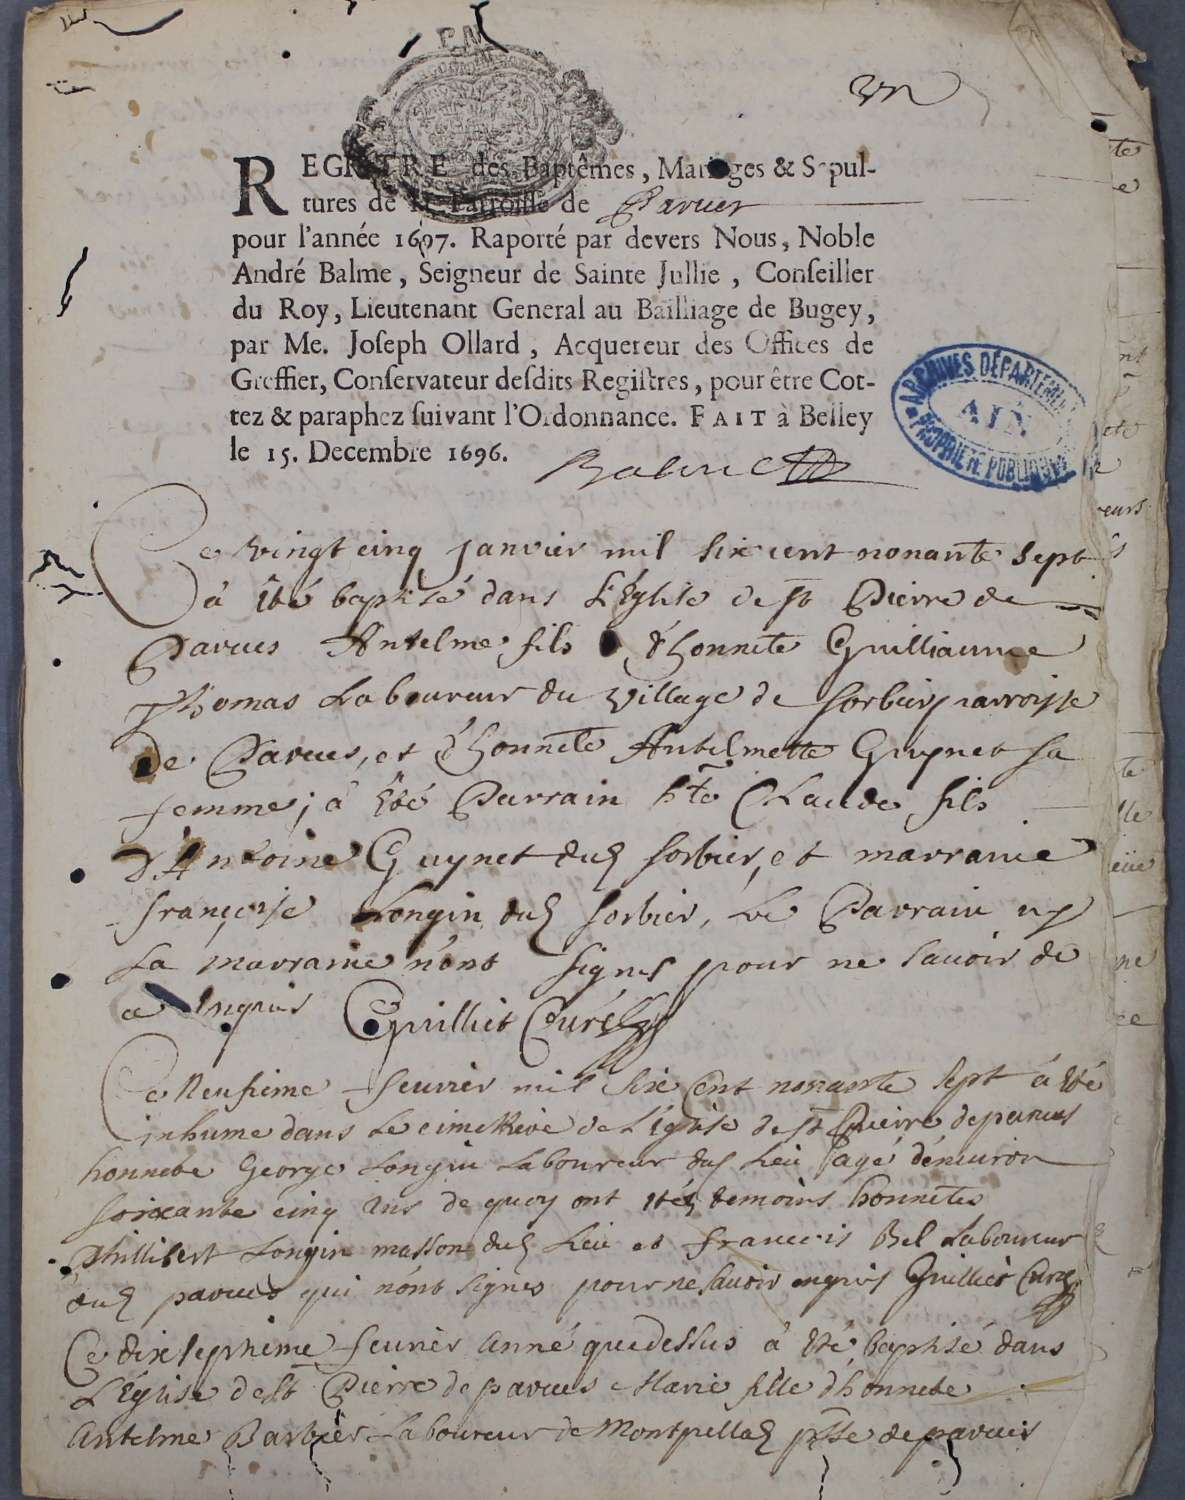 REGISTRE des Baptêmes, Mariages & Sepul-
tures de la Parroisse de Parves
pour l'année 1697. Raporté par devers Nous, Noble
André Balme, Seigneur de Sainte Jullie, Conseiller
du Roy, Lieutenant General au Bailliage de Bugey,
par Me. Joseph Ollard, Acquereur des Offices de
Greffier, Conservateur desdits Registres, pour être Cot-
tez & paraphez suivant l'Ordonnance. FAIT à Belley
le 15. Decembre 1696. Balme
ARCHIVES DÉPARTEMENTALES
AIN
PROPRIÉTÉ PUBLIQUE
Ce vingt cinq janvier mil six cent nonante sept
à été baptisé dans L'Église de st Pierre de
Parves Antelme fils d'honnete Guilliaume
Thomas Laboureur du village de sorbier parroisse
de Parves, et d'honnete Antelmette Guynet sa
femme; à été Parrain hte Claude fils
d'Antoine Guynet dud sorbier, et marraine
françoise Longin dud sorbier, Le Parrain ny
La marraine n'ont signes pour ne savoir de
ce enquis Guilliet Curé
Ce Neufieme feuvrier mil six Cent nonante sept à été
inhume dans Le cimettiere de L'Église de st Pierre de parves
honnete George Longin Laboureur dud Lieu agé d'enuiron
soixante cinq ans de quoy ont étés temoins honnetes
Phillibert Longin masson dud Lieu et francois Bel Laboureur
dud parves qui n'ont signes pour ne savoir enquis Guilliet Curé
Ce dixseptieme feuvrier Anné que dessus à été baptisé dans
L'Église de st Pierre de parves Marie fille d'honnete
Antelme Barbier Laboureur de Montpellaz psse de parves